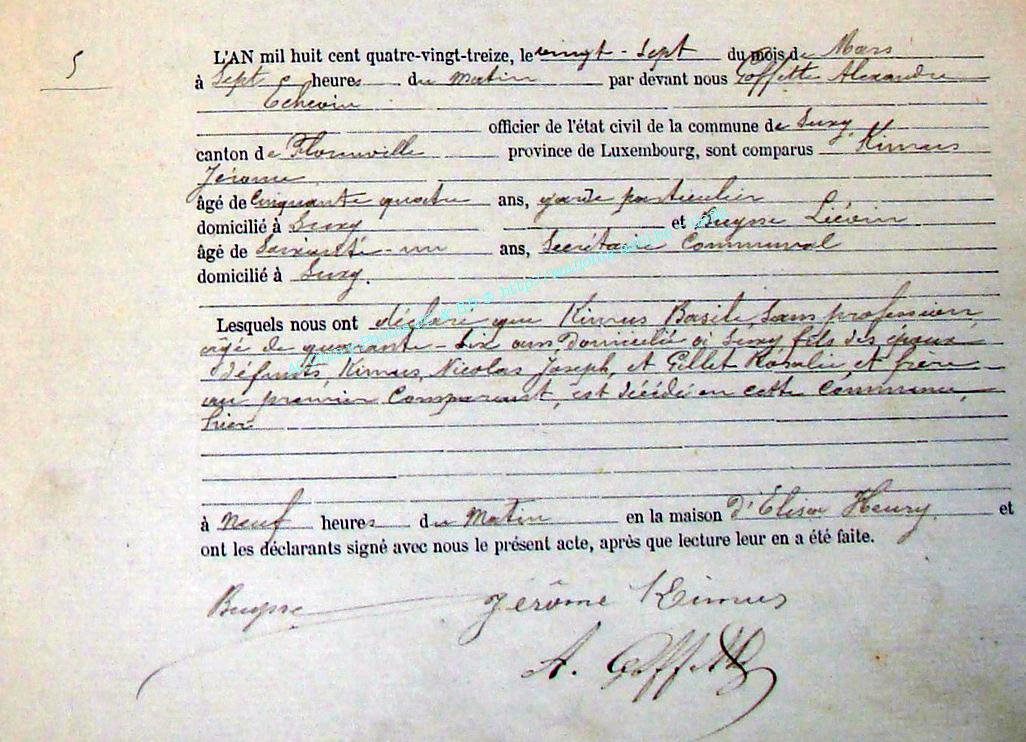 5
L'AN mil huit cent quatre-vingt-treize, le vingt-sept du mois de Mars
à Sept heures du matin par devant nous Goffette Alexandre
Echevin
officier de l'état civil de la commune de Suxy
canton de Florenville province de Luxembourg, sont comparus Kimus
Jérome
âgé de Cinquante quatre ans, garde particulier
domicilié à Suxy et Buysse Liévin
âgé de Soixante-un ans, Secrétaire Communal
domicilié à Suxy.
Lesquels nous ont déclaré que Kimus Basile, Sans profession,
agé de quarante-six ans Domicilié à Suxy fils des époux
défunts, Kimus, Nicolas Joseph, et Gillet Rosalie, et frère
au premier Comparant, est décédé en cette Commune,
hier
à neuf heures du Matin en la maison d'Elisa Henry et
ont les déclarants signé avec nous le présent acte, après que lecture leur en a été faite.
Buysse Jérôme Kimus
A. Goffette